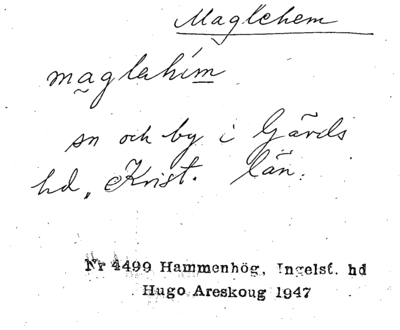 Maglehem
maglahim
sn och by i Gärds
hd, Krist. län.
Nr 4499 Hammenhög, Ingelst. hd
Hugo Areskoug 1947